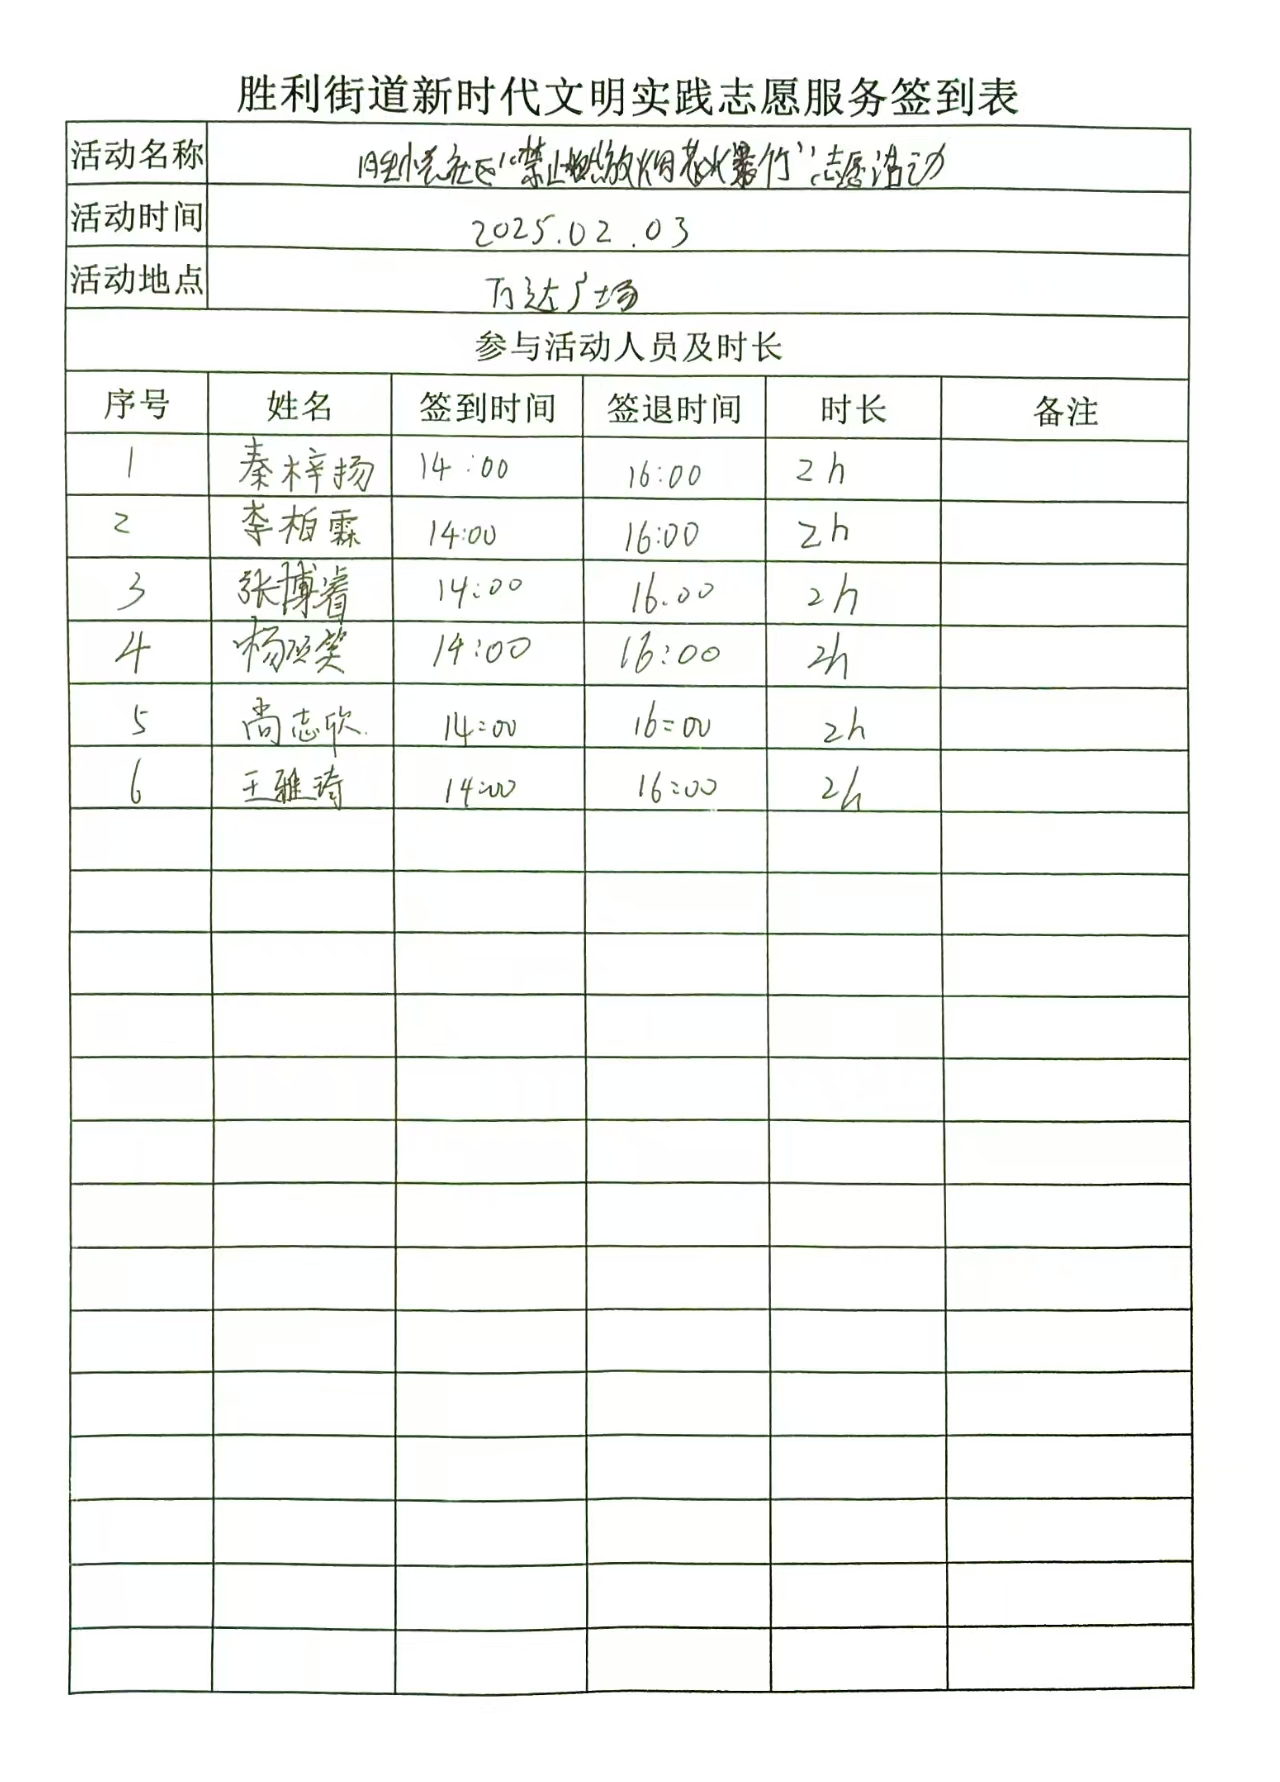 胜利街道新时代文明实践志愿服务签到表
活动名称 社区“禁止燃放烟花爆竹”志愿活动
活动时间 2025.02.03
活动地点 万达广场
参与活动人员及时长
序号 姓名 签到时间 签退时间 时长 备注
1 秦梓扬 14:00 16:00 2h
2 李柏霖 14:00 16:00 2h
3 张博睿 14:00 16:00 2h
4 杨 14:00 16:00 2h
5 尚志欣 14:00 16:00 2h
6 王雅琦 14:00 16:00 2h